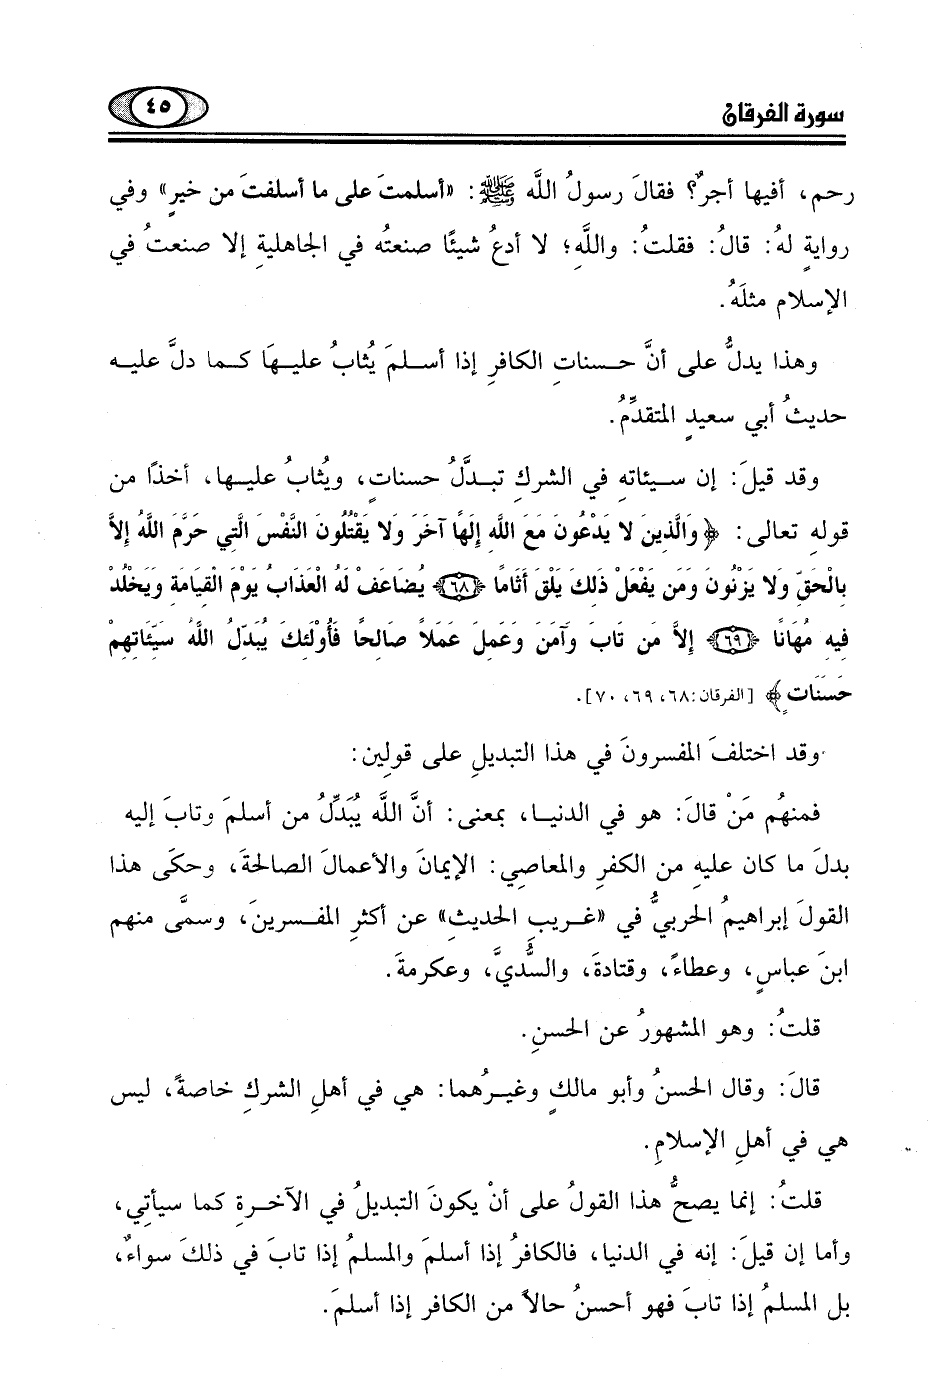 سورة الفرقان
٤٥
رحم، أفيها أجرٌ؟ فقالَ رسولُ اللَّه ﷺ: «أسلمتَ على ما أسلفتَ من خيرٍ» وفي
روايةٍ لهُ: قالُ: فقلتُ: واللَّهِ؛ لا أدعُ شيئًا صنعتُه في الجاهليةِ إلا صنعتُ في
الإسلامِ مثلَهُ.
وهذا يدلُّ على أنَّ حسناتِ الكافرِ إذا أسلمَ يُثابُ عليهَا كما دلَّ عليه
حديثُ أبي سعيدٍ المتقدِّمُ.
وقد قيلَ: إن سيئاتهِ في الشركِ تبدَّلُ حسناتٍ، ويُثابُ عليها، أخذًا من
قولهِ تعالى: ﴿وَالَّذِينَ لا يَدْعُونَ مَعَ اللَّهِ إِلَهًا آخَرَ وَلا يَقْتُلُونَ النَّفْسَ الَّتِي حَرَّمَ اللَّهُ إِلاَّ
بِالْحَقِّ وَلا يَزْنُونَ وَمَن يَفْعَلْ ذَلِكَ يَلْقَ أَثَامًا ﴿٦٨﴾ يُضَاعَفْ لَهُ الْعَذَابُ يَوْمَ الْقِيَامَةِ وَيَخْلُدْ
فِيهِ مُهَانًا ﴿٦٩﴾ إِلاَّ مَن تَابَ وَآمَنَ وَعَمِلَ عَمَلاً صَالِحًا فَأُوْلَئِكَ يُبَدِّلُ اللَّهُ سَيِّئَاتِهِمْ
حَسَنَاتٍ﴾ [الفرقان:٦٨، ٦٩، ٧٠].
وقد اختلفَ المفسرونَ في هذا التبديلِ على قولينِ:
فمنهُم مَنْ قالَ: هو في الدنيا، بمعنى: أنَّ اللَّه يُبَدِّلُ من أسلمَ وتابَ إليه
بدلَ ما كان عليهِ من الكفرِ والمعاصِي: الإيمانَ والأعمالَ الصالحةَ، وحكَى هذا
القولَ إبراهيمُ الحربيُّ في «غريبِ الحديثِ» عن أكثرِ المفسرينَ، وسمَّى منهم
ابنَ عباسٍ، وعطاءً، وقتادةَ، والسُّديَّ، وعكرمةَ.
قلتُ: وهو المشهورُ عن الحسنِ.
قالَ: وقال الحسنُ وأبو مالكٍ وغيرُهما: هي في أهلِ الشركِ خاصةً، ليس
هي في أهلِ الإسلامِ.
قلتُ: إنما يصحُّ هذا القولُ على أنْ يكونَ التبديلُ في الآخرةِ كما سيأتِي،
وأما إن قيلَ: إنه في الدنيا، فالكافرُ إذا أسلمَ والمسلمُ إذا تابَ في ذلكَ سواءٌ،
بل المسلمُ إذا تابَ فهو أحسنُ حالاً من الكافرِ إذا أسلمَ.